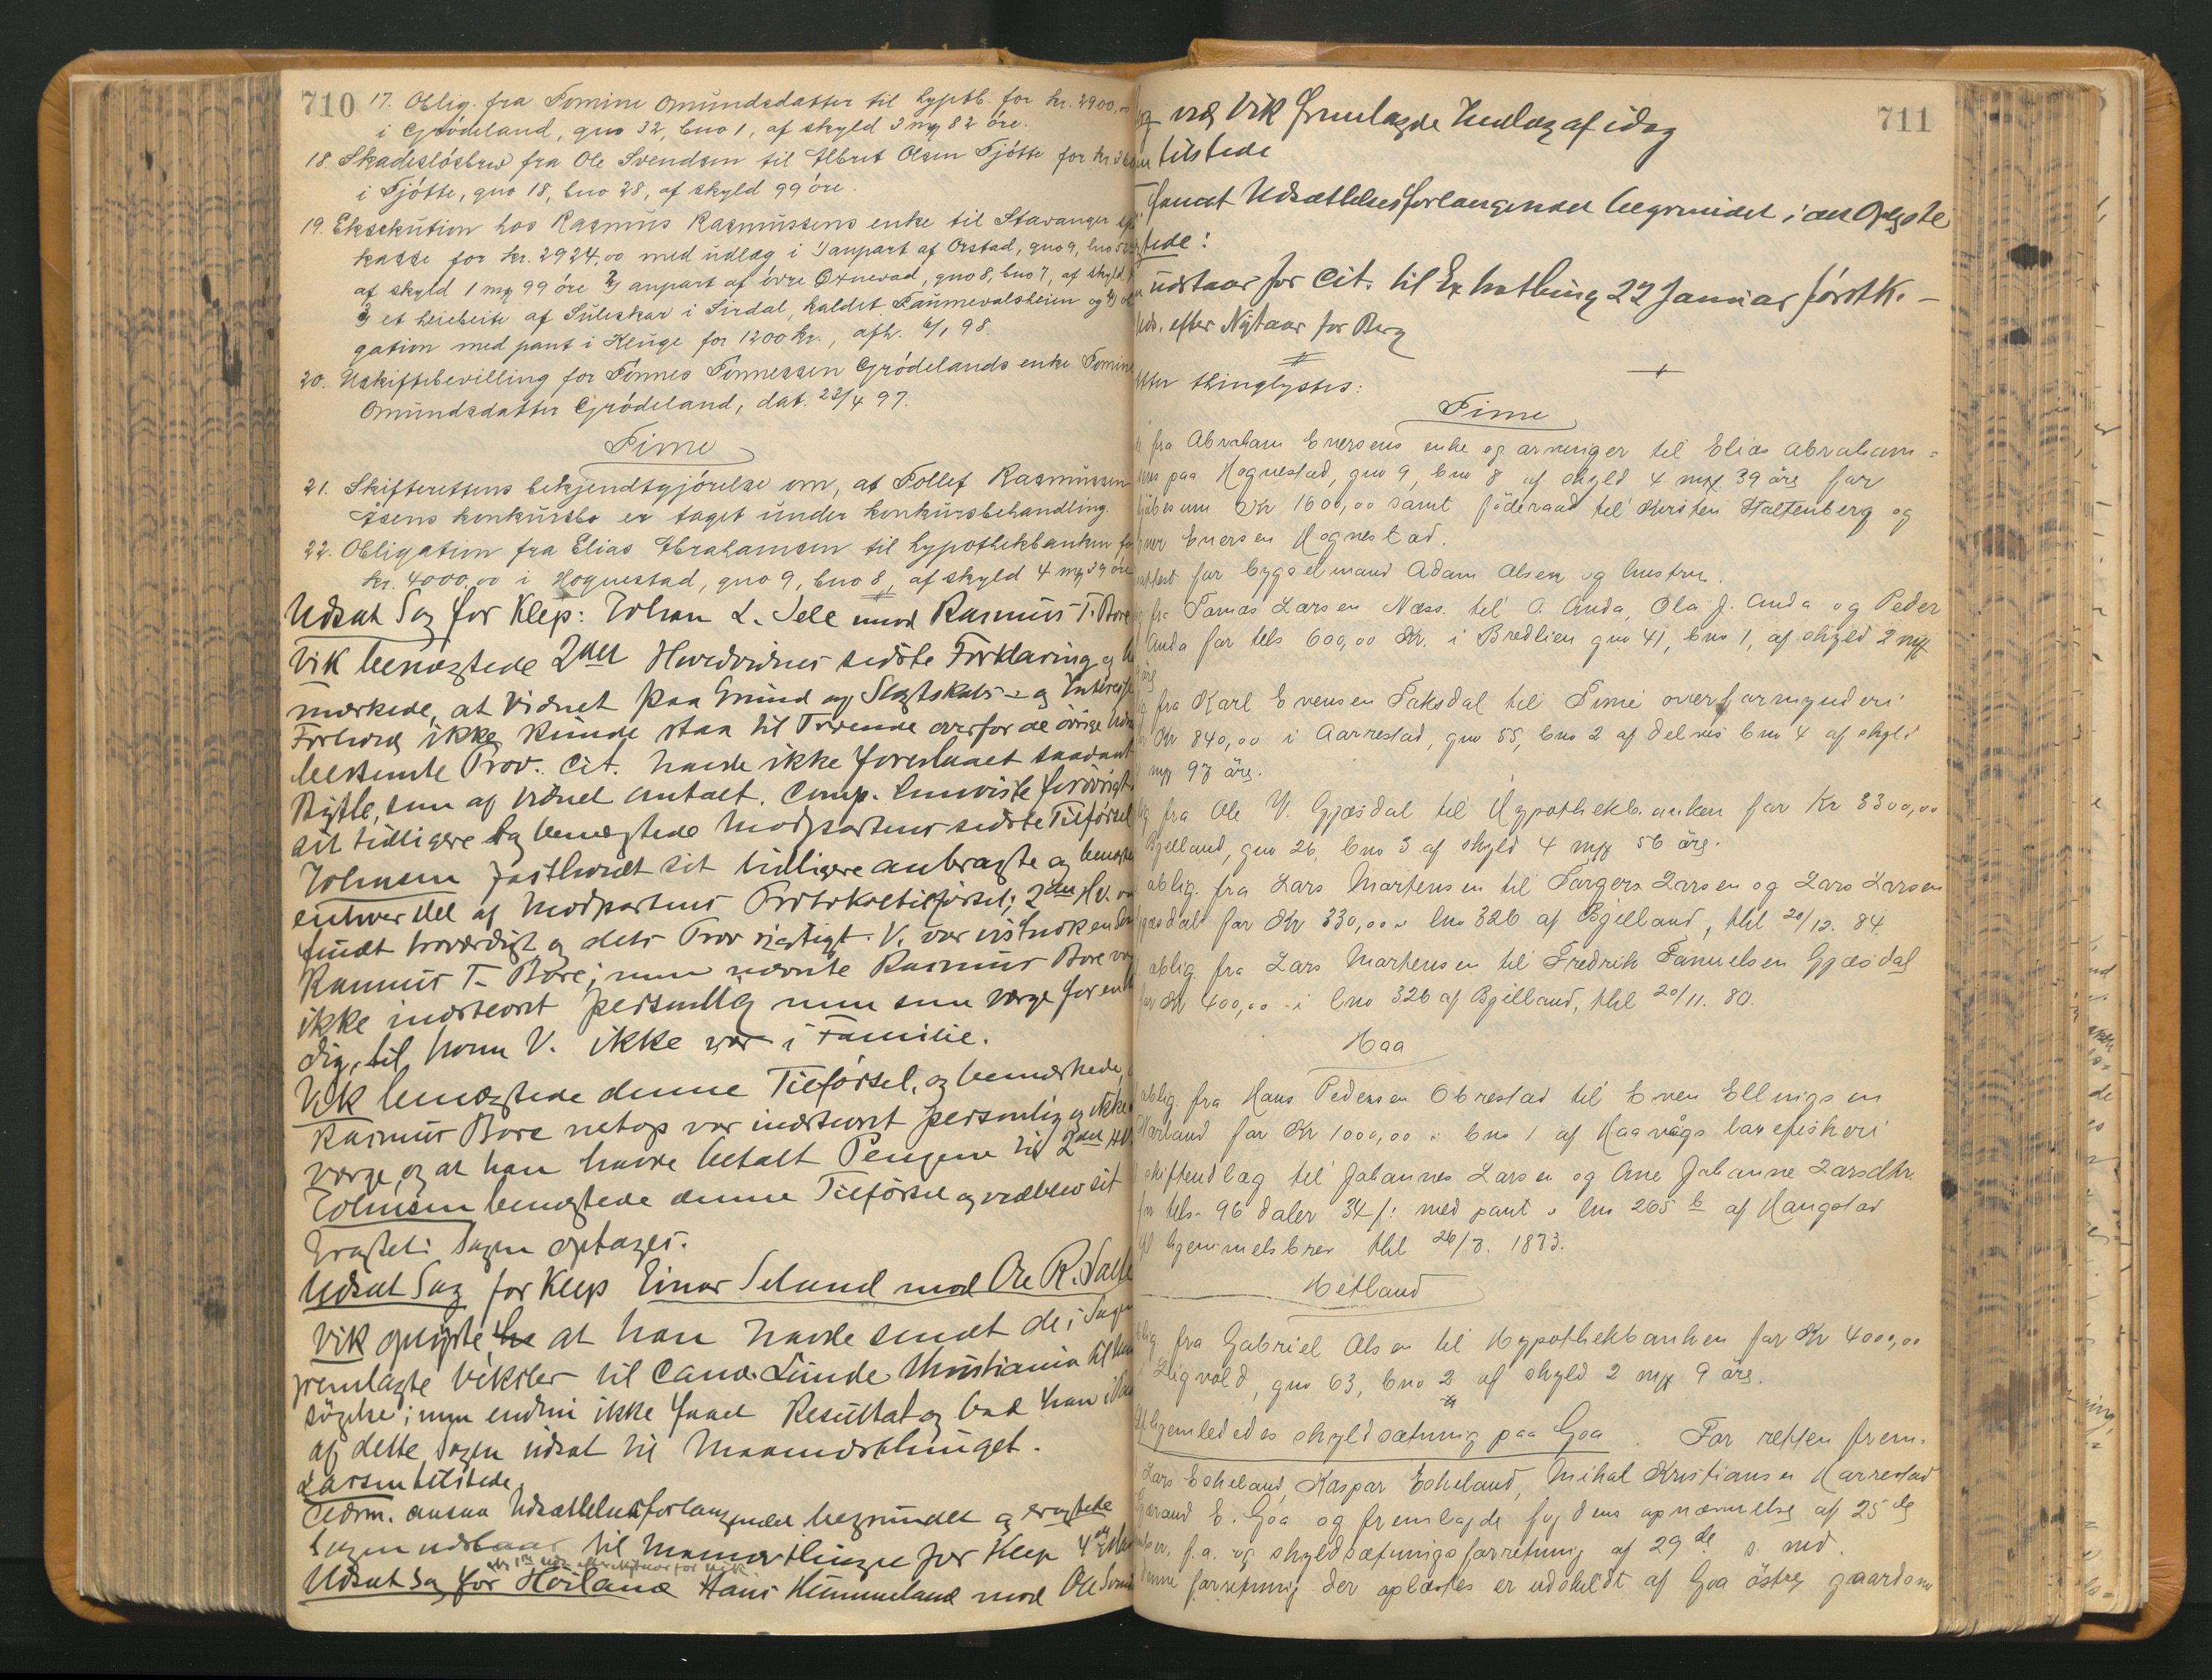 710
17. Oblig. fra Tomine Omundsdatter til hyptb. for kr. 2900,00
i Grödeland, gno 32, bno 1, af skyld 3 mg 82 öre.
18. Skadeslösbrev fra Ole Svendsen til Albret Olsen Tjötte for kr.
i Tjötte, gno 18, bno 28, af skyld 99 öre.
19. Eksekution hos Rasmus Rasmussens enke til Stavanger
kasse for kr. 2924.00 med udlæg i 1 anpart af Orstad, gno 9, bno
af skyld 1 mg 99 öre 2) anpart af övre Øxnevad, gno 8, bno 7, af skyld
3) et heiebeite af Suleskar i Sirdal, kaldet og
gation med pant i Kluge for 1200 kr., afh. 6/1 98.
20. Uskiftebevilling for Tönnes Tönnessen Grödelands enke Tomine
Omundsdatter Grödeland, dat. 22/4 97.
Time
21. Skifterettens bekjendtgjörelse om, at Tollef Rasmussen
Åsens konkursbo er taget under konkursbehandling.
22. Obligation fra Elias Abrahamsen til hypothekbanken for
kr. 4000,00 i Hognestad, gno 9, bno 8, af skyld 4 mg 39 öre
Udsat Sag for Klep: Johan L. Sele mod Rasmus T. Bore
Vik benægtede 2det Hovedvidnes sidste Forklaring og
mærkede, at Vidnet paa Grund af Slægtskabs- og Interesse
Forhold ikke kunde staa til Troende overfor de övrige
bestemte Prov. Cit. havde ikke foreslaaet saadant
Bytte, som af Vidnet omtalt. Comp. henviste forövrigt
sit tidligere og benægtede Modpartens sidste Tilförsel
Tolmsen fastholdt sit tidligere anbragte og benægte
enhver Del af Modpartens Protokoltilförsel; 2det Hv.
fuldt troværdigt og dets Prov rigtigt. V. var vistnok en
Rasmus T. Bore; men nævnte Rasmus Bore var
ikke indstevnt personlig men som værge for en
dig, til hvem V. ikke var i Familie.
Vik benægtede denne Tilförsel, og bemærkede,
Rasmus Bore netop var indstevnt personlig og ikke
værge, og at han havde betalt Pengene til 2det Hv.
Tolmsen benægtede denne Tilförsel og vedblev sit
Eragtet: Sagen optages.
Udsat Sag for Klep Einar Selund mod Ole R. Salte
Vik oplyste at han havde sendt de i Sagen
fremlagte Veksler til Cand. Lunde Christiania til
søgelse; men endnu ikke faaet Resultat og bad han
af dette Sagen udsat til Maanedsthinget.
Larsen tilstede
Adm. ansaa Udsættelsesforlangendet begrundet og eragtede
Sagen udstaar til Maanedsthinget for Klep
Udsat Sag for Höiland Hans Hummeland mod Ole
711
og ved Vik fremlagde Indlæg af idag
tilstede
fandt Udsættelsesforlangendet begrundet i det Oplyste
tede:
udstaar for Cit. til Ex 22 Januar förstk. –
efter Nytaar for Berg
Efter thinglystes:
Time
fra Abraham Eversens enke og arvinger til Elias Abraham=
sens paa Hognestad, gno 9, bno 8 af skyld 4 mg 39 öre for
kjöbesum Kr 1600,00 samt föderaad til Kirsten Haltenberg og
Eversen Hognestad.
attest for bygselmand Adam Olsen og hustru.
fra Tomas Larsen Næss. til O. Anda, Ola J. Anda og Peder
Anda for tils 600,00 Kr. i Bredlien gno 41, bno 1, af skyld 2 mg
öre
fra Karl Evensen Taksdal til Time overformynderi
Kr 840,00 i Aarrestad, gno 55, bno 2 af delvis bno 4 af skyld
mg 97 öre.
fra Ole V. Gjæsdal til Hypothekbanken for Kr 3300,00
Bjelland, gno 26, bno 3 af skyld 4 mg 56 öre.
oblig. fra Lars Martensen til Torgers Larsen og Lars Larsen
Gjæsdal for Kr 330,00 i lno 326 af Bjelland, thl 20/12. 84.
oblig. fra Lars Martensen til Fredrik Samuelsen Gjæsdal
for Kr 400,00 i lno 326 af Bjelland, thl 20/11. 80.
Haa
oblig. fra Hans Pedersen Obrestad til Even Ellingsen
Nærland for Kr 1000,00 i bno 1 af Haavågs laxefiskeri
skifteudlæg til Johannes Larsen og Ane Johanne Larsdtr.
for tils. 96 daler 34 s: med pant i lno 265 b af Haugstad
hjemmelsbrev thl 26/3. 1873.
Hetland
fra Gabriel Olsen til Hypothekbanken for Kr 4000,00
Leigvold, gno 63, bno 2 af skyld 2 mg 9 öre.
Afhjemledes skyldsætning paa Goa. For retten frem-
Lars Eskeland, Kaspar Eskeland, Mikal Kristiansen Harrestad
E. Goa og fremlagde fogdens opnævnelse af 25de
f. a. og skyldsætningsforretning af 29de s. md.
Denne forretning der oplæstes er udskildt af Goa östre gaards